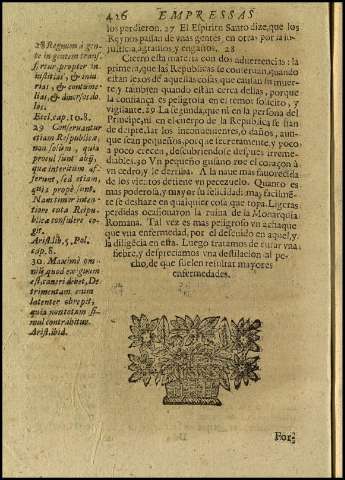 426 EMPRESSAS
los perdieron. 27 El Espiritu Santo dize, que los
Reynos passan de vnas gentes en otras por la in-
justicia, agravios, y engaños. 28
Cierro esta materia con dos advertencias: la
primera, que las Republicas se conservan, quando
estan lexos de aquellas cosas, que causan su muer-
te; y tambien quando estàn cerca dellas, porque
la confiança es peligrosa en el temor solicito, y
vigilante. 29 La segunda, que ni en la persona del
Principe, ni en el cuerpo de la Republica se han
de despreciar los inconvenientes, ò daños, aun-
que sean pequeños, porque secretamente, y poco
a poco crecen, descubriendose despues irreme-
diables. 30 Vn pequeño gusano roe el coraçòn à
vn cedro, y le derriba. A la nave mas favorecida
de los vientos detiene vn pececuelo. Quanto es
mas poderosa, y mayor su velocidad, mas facilmẽ-
te se deshaze en qualquier cosa que topa. Ligeras
perdidas ocasionaron la ruina de la Monarquia
Romana. Tal vez es mas peligroso vn achaque
que vna enfermedad, por el descuido en aquel, y
la diligẽcia en esta. Luego tratamos de curar vna
fiebre, y despreciamos vna destilacion al pe-
cho, de que suelen resultar mayores
enfermedades.
28 Regnum à gen-
te in gentem trans-
fertur, propter in-
iustitias, & iniu-
rias, & contume-
lias, & diversos do-
los.
Eccl. cap. 10. 8.
29 Conservantur
etiam Reipublicæ,
non solum, quia
procul sunt ab ijs,
quæ interitum af-
ferunt, sed etiam
quia propè sunt.
Nam timor inten-
tiore cura Reipu-
blicæ consulere co-
git.
Arist. lib. 5. Pol.
cap. 8.
30. Maximè om-
nis, quod exiguum
est, caveri debet, De
trimentum enim
latenter obrepit,
quia non totam si-
mul contrahitur.
Arist. ibid.
For-